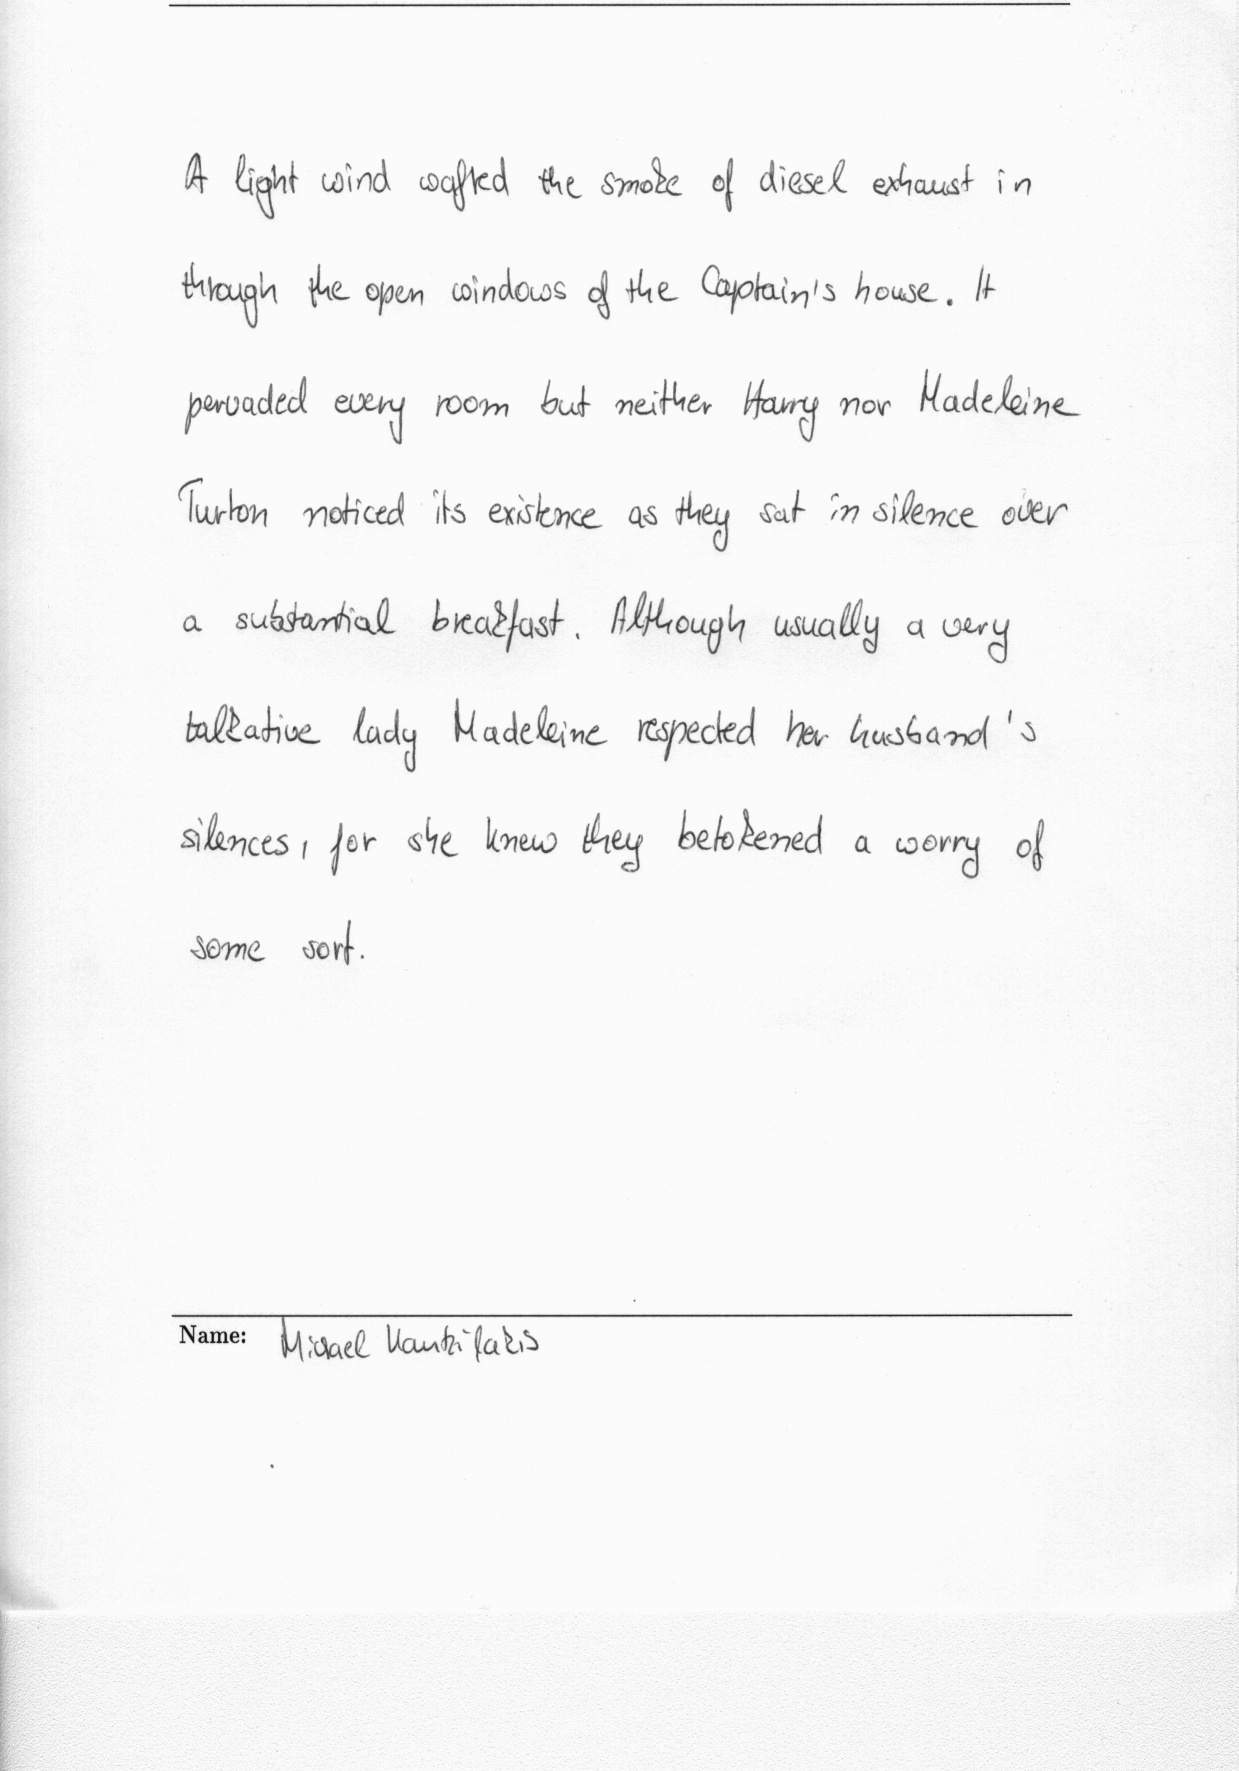 A light wind wafted the smoke of diesel exhaust in
through the open windows of the Captain's house. It
pervaded every room but neither Harry nor Madeleine
Turton noticed its existence as they sat in silence over
a substantial breakfast. Although usually a very
talkative lady Madeleine respected her husband's
silences, for she knew they betokened a worry of
some sort.
Name: